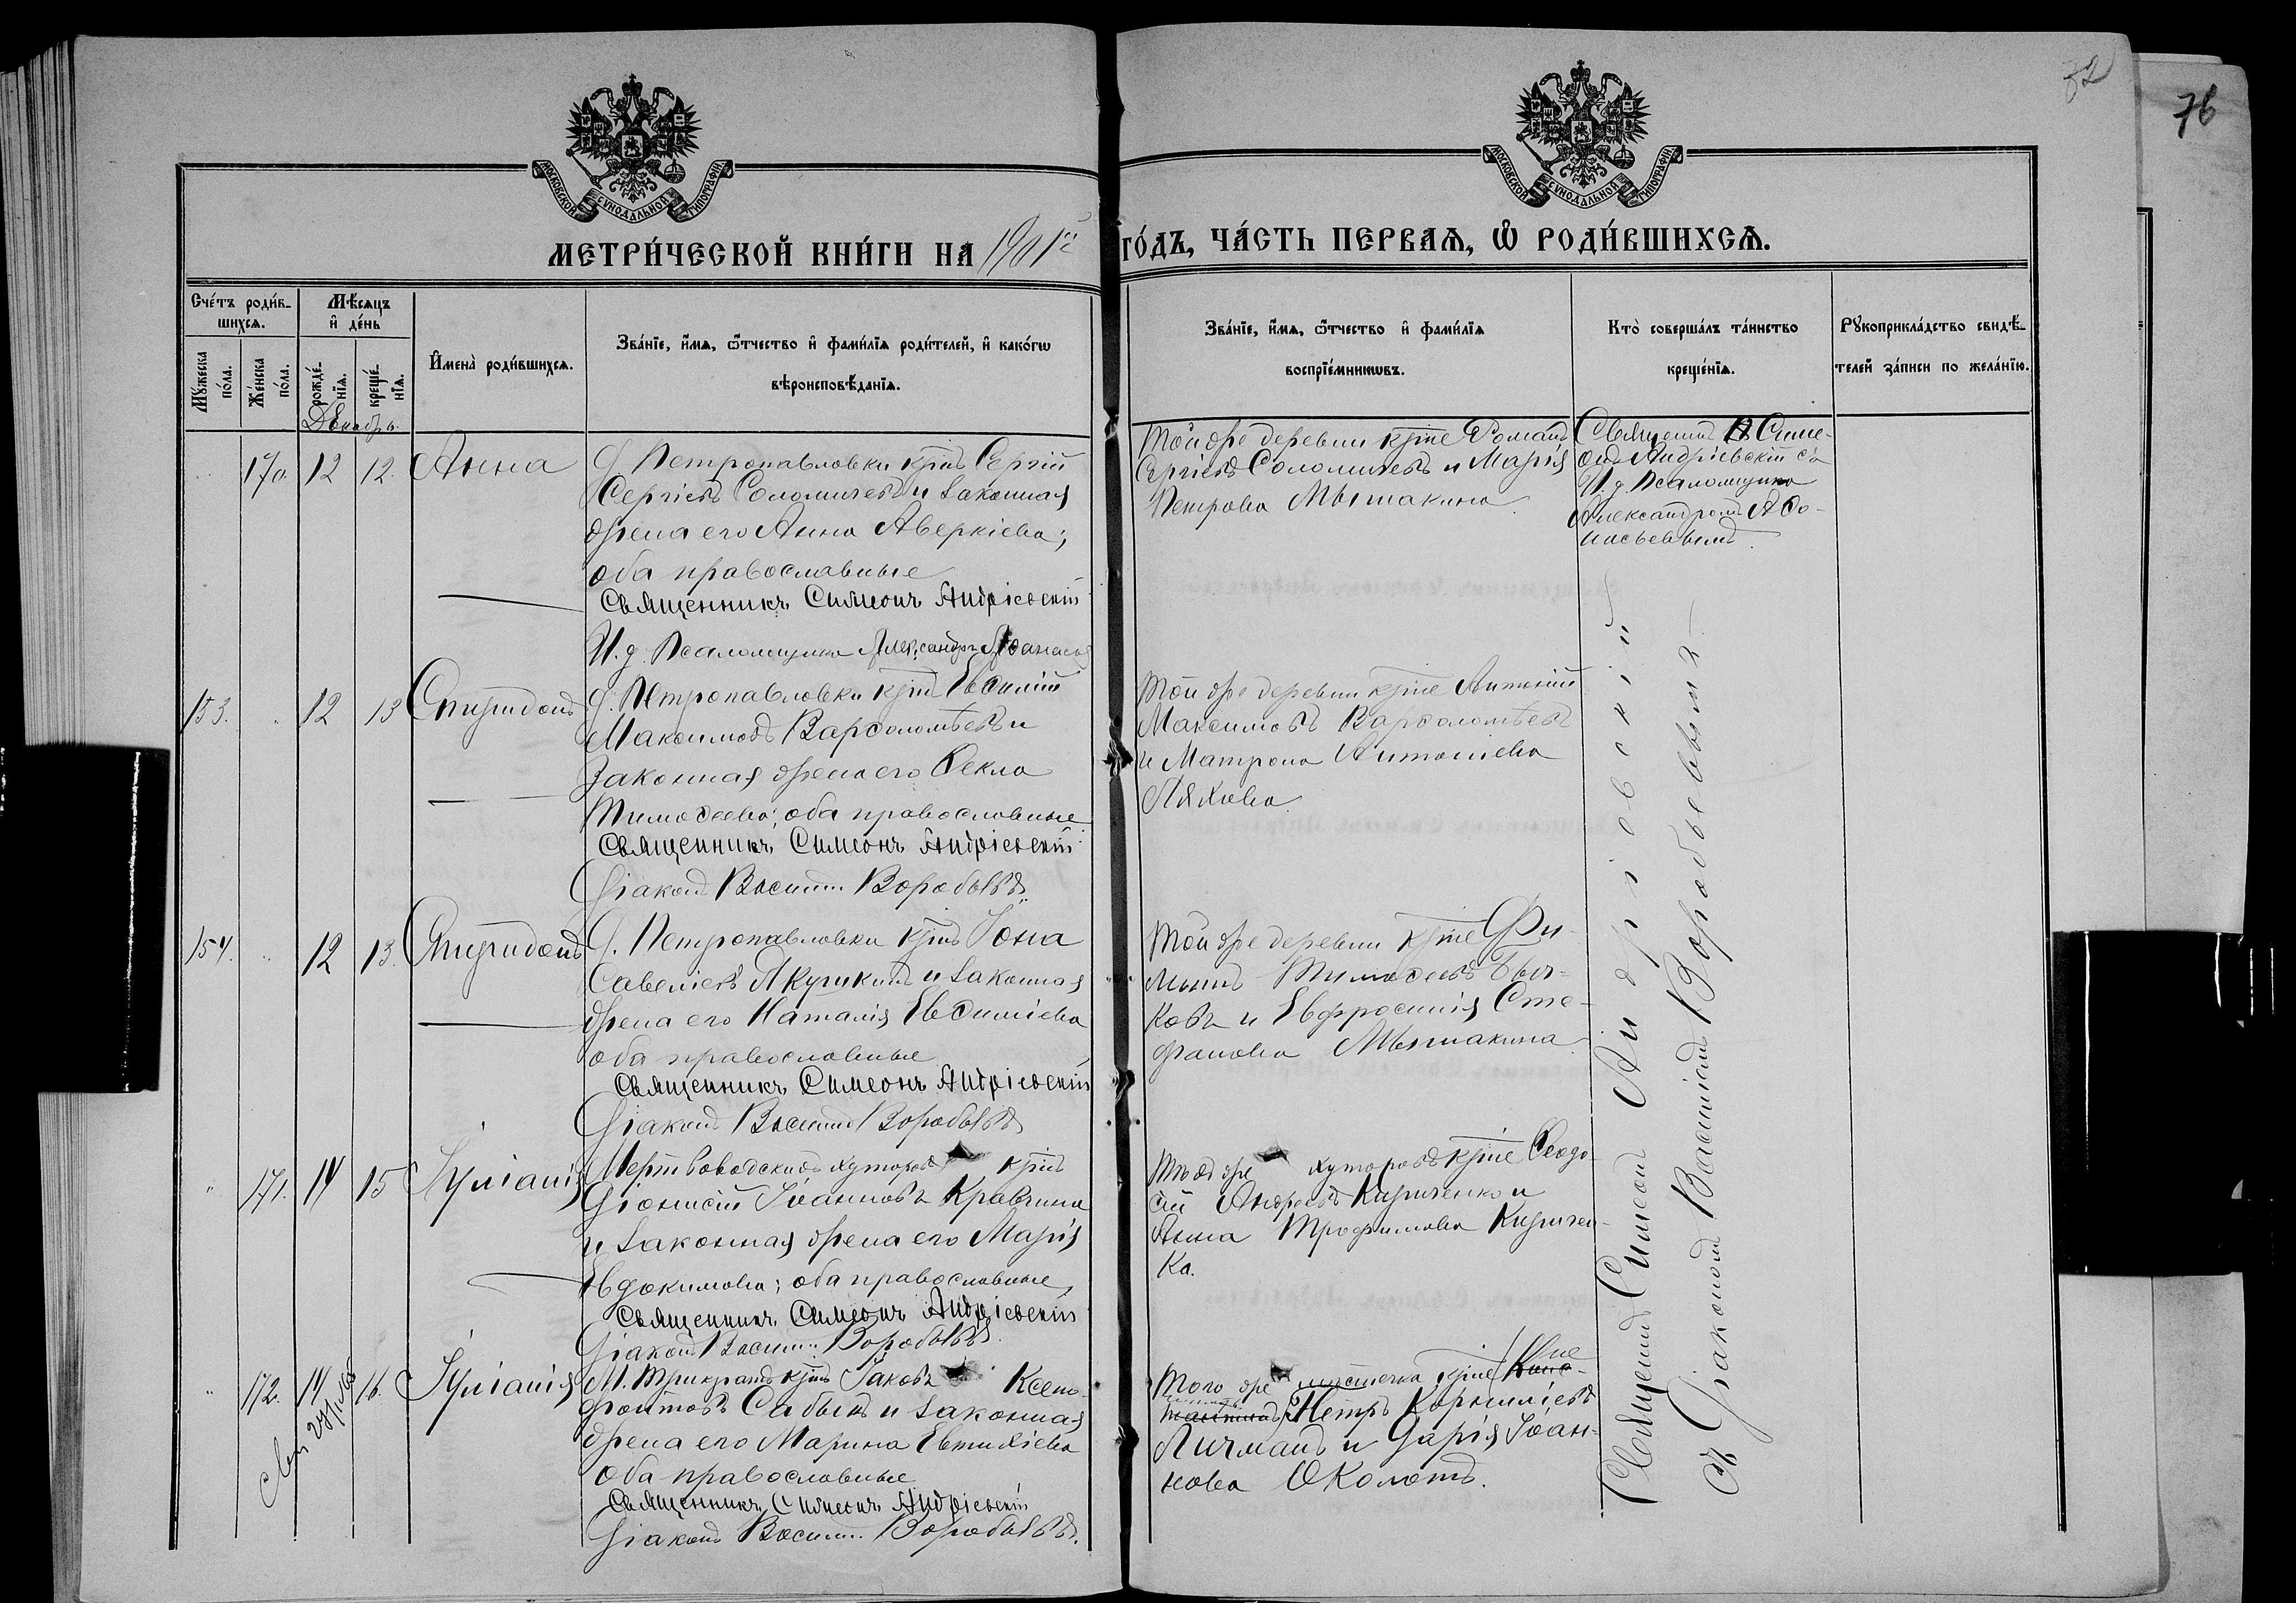 32
76
МОСКОВСКОЙ СѴНОДАЛЬНОЙ ТИПОГРАФІИ.
МОСКОВСКОЙ СѴНОДАЛЬНОЙ ТИПОГРАФІИ.
МЕТРИ́ЧЕСКОЙ КНИ́ГИ НА 1901й
ГО́ДЪ, ЧА́СТЬ ПЕРВАѦ, Ѡ҆ РОДИ́ВШИХСѦ.
Сче́тъ роди́в-
шихсѧ.
Мꙋжеска по́ла.
Же́нска по́ла.
Мѣ́сѧцъ
и҆ де́нь
рожде́-
нїѧ.
креще́-
нїѧ.
И҆мена̀ роди́вшихсѧ.
Зва́нїе, и҆́мѧ, ѻ҆́тчество и҆ фами́лїѧ роди́телей, и҆ како́гѡ
вѣроисповѣ́данїѧ.
Зва́нїе, и҆́мѧ, ѻ҆́тчество и҆ фами́лїѧ
воспрїе́мникѡвъ.
Кто̀ соверша́лъ та́инство
креще́нїѧ.
Рꙋкоприкла́дство свидѣ́-
телей за́писи по жела́нїю.
Декабрь.
170. 12 12. Анна
Д. Петропавловки крнъ Сергій
Сергіевъ Соломичевъ и законная
жена его Анна Аверкіева;
оба православные
Священникъ Симеонъ Андріевскій
И. д. Псаломщика Александръ Аѳанасьев
Той же деревни крне Романъ
Сергіевъ Соломичевъ и Марія
Петрова Мышакина.
Священникъ Симе-
онъ Андріевскій съ
И. д. Псаломщика
Александромъ Аѳа-
насьевымъ.
153. 12 13 Спиридонъ
Д. Петропавловки крнъ Евѳимій
Максимовъ Варѳоломѣевъ и
законная жена его Ѳекла
Тимоѳеева; оба православные
Священникъ Симеонъ Андріевскій
Діаконъ Василій Воробьевъ
Той же деревни крне Антоній
Максимовъ Варѳоломѣевъ
и Матрона Антоніева
Ляхова.
154. 12 13. Спиридонъ
Д. Петропавловки крнъ Іона
Савеліевъ Якушкинъ и законная
жена его Наталія Евѳиміева
оба православные
Священникъ Симеонъ Андріевскій
Діаконъ Василій Воробьевъ
Той же деревни крне Фи-
липпъ Тимоѳеевъ Быч-
ковъ и Евфросинія Сте-
фанова Мышакина
171. 14 15 Іуліанія
Мертвоводскихъ хуторовъ крнъ
Діонисій Іоанновъ Кравчина
и законная жена его Марія
Евдокимова; оба православные
Священникъ Симеонъ Андріевскій
Діаконъ Василій Воробьевъ.
Тѣхъ же хуторовъ крне Ѳеодо-
сій Андреевъ Кириченко и
Анна Трофимова Киричен-
ка.
172. 14 16. Іуліанія
М. Трикратъ крнъ Іаковъ Ксено-
фонтовъ Сабынъ и законная
жена его Марина Евтихіева
оба православные
Священникъ Симеонъ Андріевскій
Діаконъ Василій Воробьевъ.
Того же мѣстечка крне
Петръ Корниліевъ
Личманъ и Дарія Іоан-
нова Околотъ.
Священникъ Симеонъ Андріевскій
съ Діакономъ Василіемъ Воробьевымъ